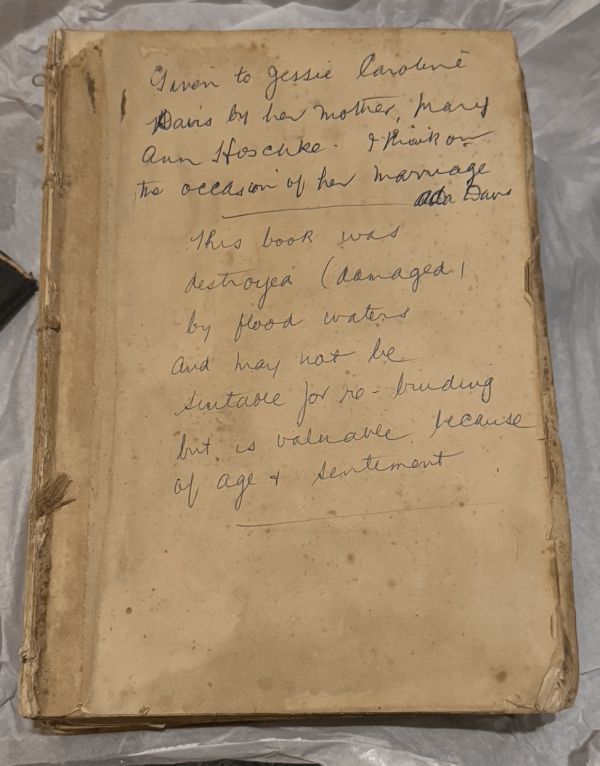 Given to Jessie Caroline
Davis by her Mother, Mary
Ann Hoschke. I think on
the occasion of her Marriage
Ada Davis
This book was
destroyed (damaged)
by flood waters
and may not be
suitable for re-binding
but is valuable because
of age & sentement.